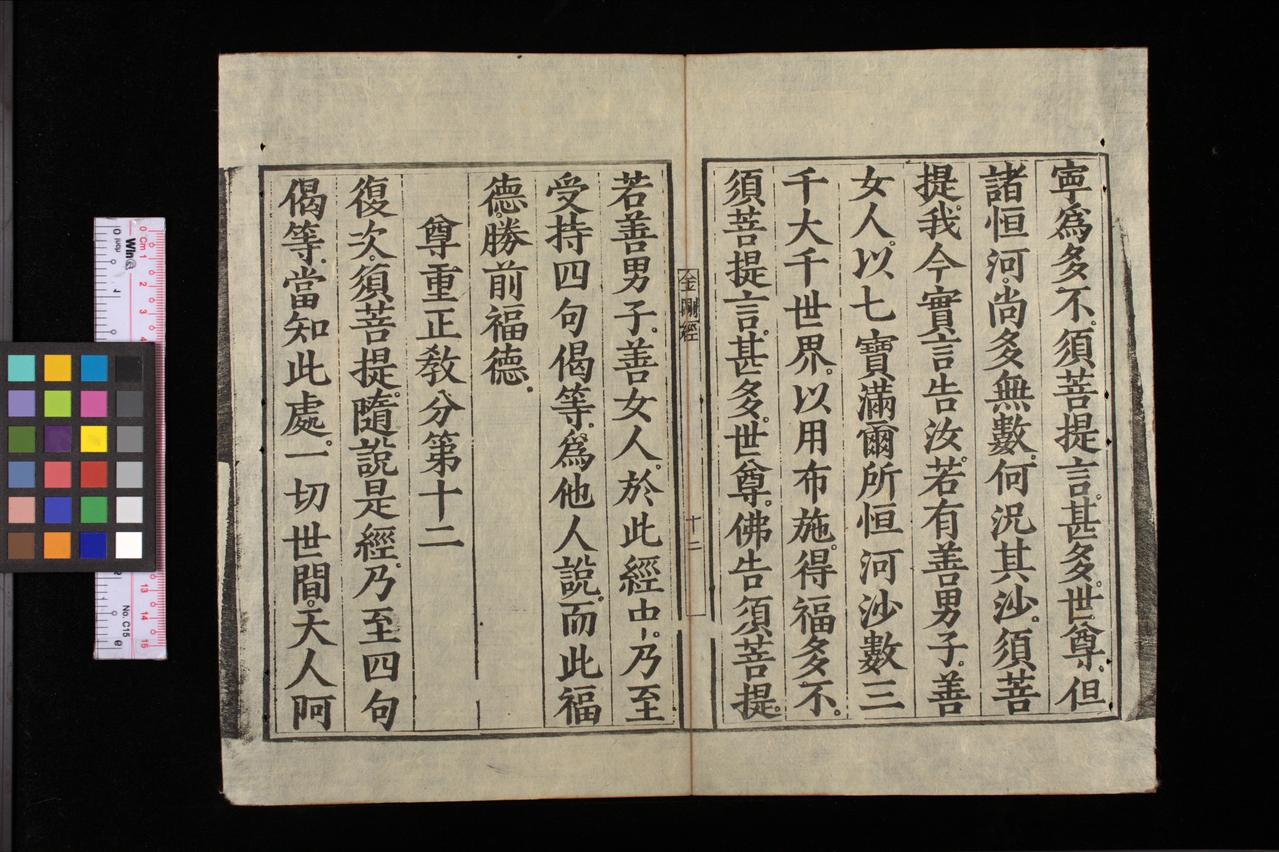 寧爲多不。須菩提言。甚多。世尊。但
諸恒河。尚多無數。何況其沙。須菩
提。我今實言告汝。若有善男子。善
女人。以七寶滿爾所恒河沙數三
千大千世界。以用布施。得福多不。
須菩提言。甚多。世尊。佛告須菩提。
金剛經
十二
若善男子。善女人。於此經中。乃至
受持四句偈等。爲他人說。而此福
德。勝前福德。
尊重正教分第十二
復次。須菩提。隨說是經。乃至四句
偈等。當知此處。一切世間。天人阿
0 Cm 1 2 3
13 14 15
No. C15